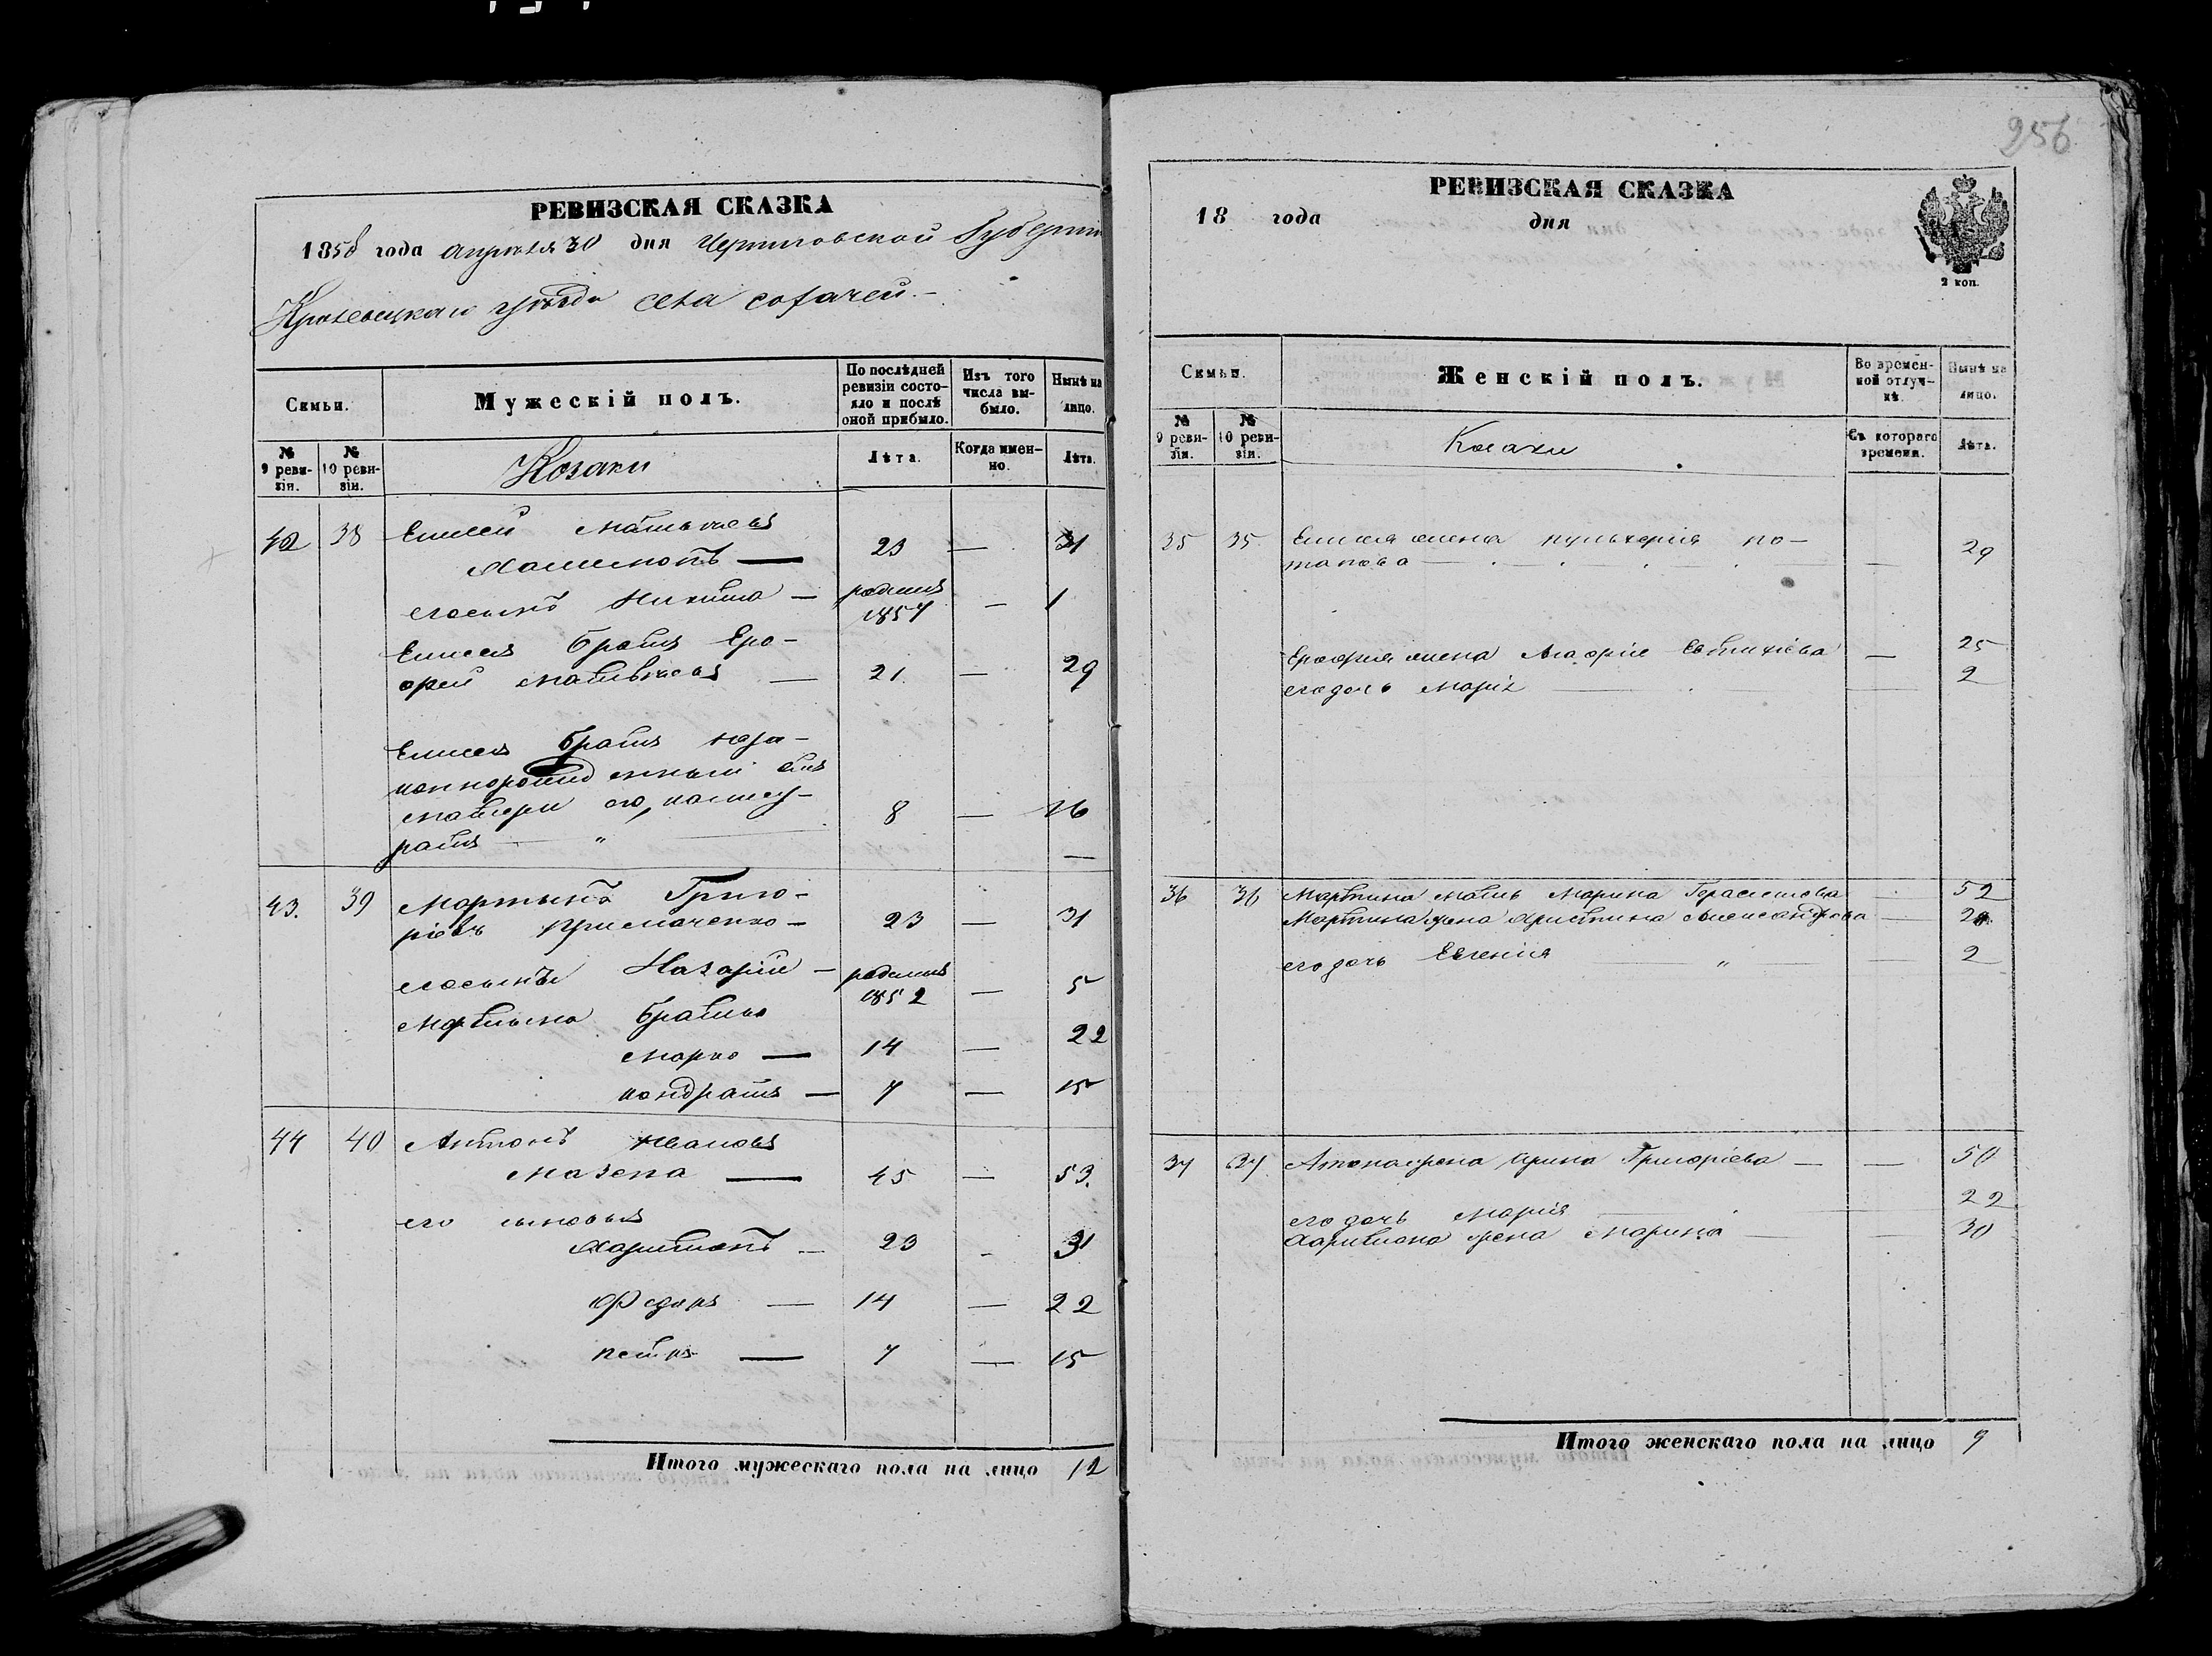 256
РЕВИЗСКАЯ СКАЗКА
1858 года апрѣля 30 дня Черниговской Губерніи
Кролевецкаго уѣзда села сохачей.
Семьи.
Мужескій полъ.
По послѣдней ревизіи состояло и послѣ оной прибыло.
Изъ того числа выбыло.
Нынѣ на лицо.
№ 9 ревизіи.
№ 10 ревизіи.
Козаки
Лѣта.
Когда именно.
Лѣта.
42 38 Елисей Матвѣевъ
23 — 31
его сынъ Никита — родился 1857 — 1
Елисея братъ Еро-
фей Матвѣевъ — 21 — 29
Елисея братъ неза-
коннорожденный отъ
матери его, 8 — 16
43. 39 Мартынъ Григо-
ріевъ Примаченко — 23 — 31
его сынъ Назарій — родился 1852 — 5
Мартына братья
Марко — 14 — 22
Кондратъ — 7 — 15
44 40 Антонъ Ивановъ
Мазепа — 45 — 53.
его сыновья
Харитонъ — 23 — 31
Федоръ — 14 — 22
Петръ — 7 — 15
Итого мужескаго пола на лицо 12
РЕВИЗСКАЯ СКАЗКА
18 года дня
2 коп.
Семьи.
Женскій полъ.
Во временной отлучкѣ.
Нынѣ на лицо.
№ 9 ревизіи.
№ 10 ревизіи.
Козаки
Съ котораго времени.
Лѣта.
35 35 Елисея жена Пулхерія По-
тапова — 29
Ерофея жена Евтихіева — 25
его дочь Марія — 2
36 36 Мартина мать Марина Герасимова 52
Мартина жена Христина Александрова —
его дочь Евгенія — " — 2
37 37 Антона жена Ирина Григоріева — — 50
его дочь Марія 22
Харитона жена Марина — 30
Итого женскаго пола на лицо 9